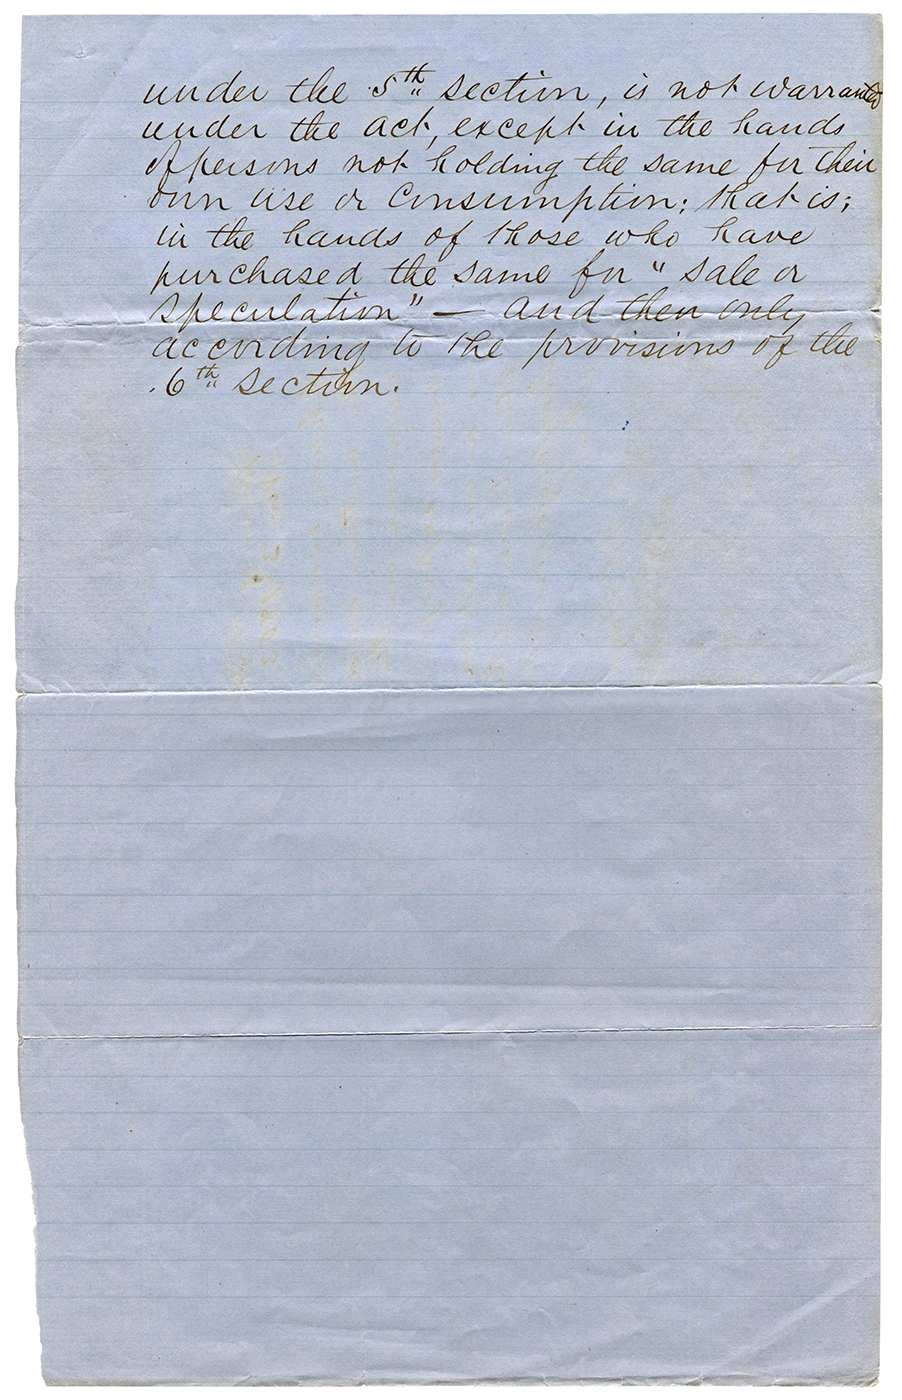 under the 5th section, is not warranted
under the act, except in the hands
of persons not holding the same for their
own use or consumption; that is;
in the hands of those who have
purchased the same for "sale or
speculation" — and then only
according to the provisions of the
6th section.